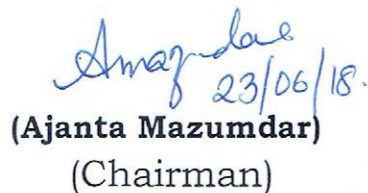 Amazumdar
23/06/18.
(Ajanta Mazumdar)
(Chairman)